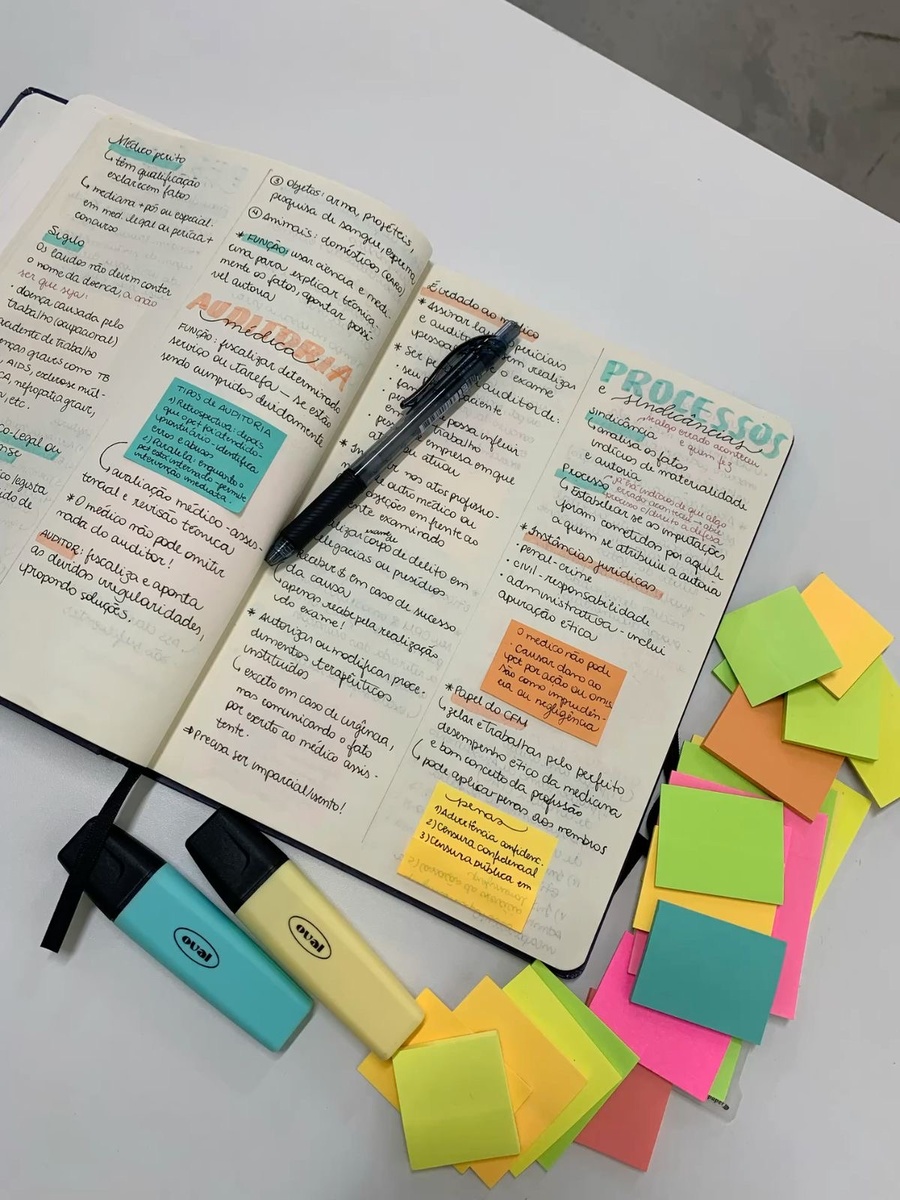 Médico perito
↳ têm qualificação
esclarecem fatos
↳ medicina + pós ou especial.
em med. legal ou perícia +
concurso
Sigilo
Os laudos não devem conter
o nome da doença, a não
ser que seja:
• doença causada pelo
trabalho (ocupacional)
de trabalho
graves como TB
, AIDS, esclerose múl-
, nefropatia grave,
, etc.
-legal ou
legista
③ Objetos: arma, projéteis,
pesquisa de sangue, esperma
④ Animais: domésticos (
* FUNÇÃO: usar a ciência e medi-
cina para explicar técnica-
mente os fatos, apontar possí-
vel autoria
AUDITORIA
médica
FUNÇÃO: fiscalizar determinado
serviço ou tarefa → se está
sendo cumpridos devidamente
TIPOS DE AUDITORIA
1) Retrospectiva: depois
que o pct foi atendido-
prontuário - identifica
erros e abusos
2) Paralela: enquanto o
pct está internado - permite
intervenção imediata.
↳ avaliação médico-assis-
tencial e revisão técnica
* O médico não pode omitir
nada do auditor!
AUDITOR: fiscaliza e aponta
as devidas irregularidades,
propondo soluções.
É vedado ao médico
* Assinar periciais
e auditoria realizar
pessoal o exame
* Ser auditor de:
• seu paciente
• possa influir
trabalho
• empresa em que
ou atuou
nos atos profissio-
outro médico ou
em frente ao
examinado
corpo de delito em
delegacias ou presídios
em caso de sucesso
da causa
↳ apenas recebe pela realização
do exame!
* Autorizar ou modificar proce-
dimentos terapêuticos
instituídos
↳ exceto em caso de urgência,
mas comunicando o fato
por escrito ao médico assis-
tente.
* Precisa ser imparcial/isento!
PROCESSOS
e sindicâncias
Sindicância: algo errado aconteceu
e quem fez
↳ analisa os fatos
indícios de materialidade
e autoria
Processo: já há indícios de que algo
errado aconteceu → abre
processo c/ direito a defesa
↳ Estabelecer se as imputações
foram cometidas por aquele
a quem se atribuiu a autoria
* Instâncias jurídicas
• penal - crime
• civil - responsabilidade
• administrativa - inclui
apuração ética
O médico não pode
• Causar dano ao
pct por ação ou omis
são como imprudên-
cia ou negligência
* Papel do CFM
↳ zelar e trabalhar pelo perfeito
desempenho ético da medicina
↳ e bom conceito da profissão
↳ pode aplicar penas aos membros
penas
1) Advertência confidenc.
2) Censura confidencial
3) Censura pública em
oval
oval